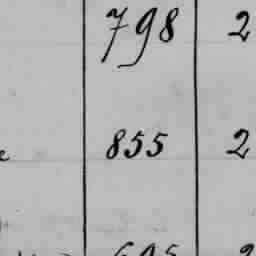 798 2
855 2